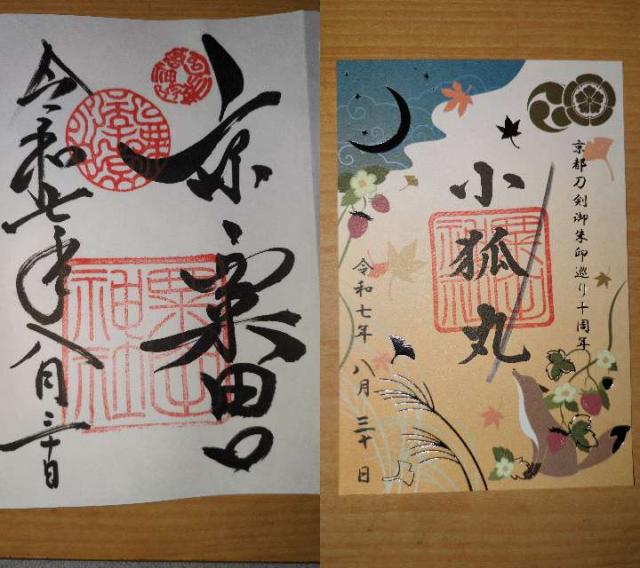 京 粟田口
令和七年八月三十日
粟田神社
京都刀剣御朱印巡り十周年
小狐丸
令和七年 八月 三十日
粟田神社